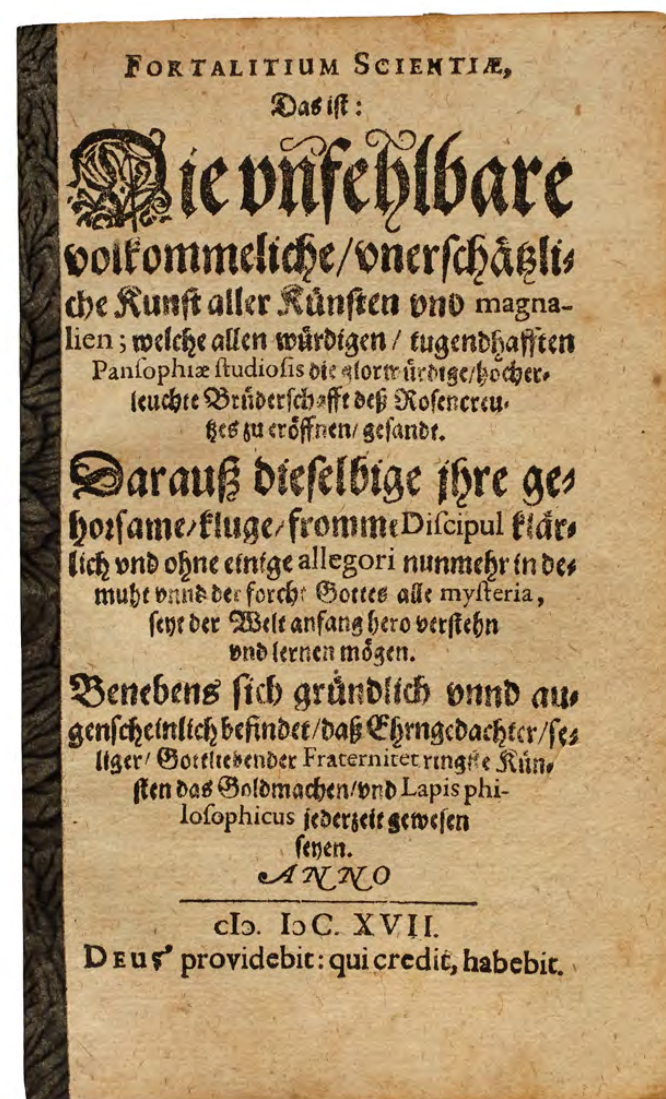 FORTALITIUM SCIENTIÆ,
Das ist:
Die vnfehlbare
volkommeliche/vnerschätzli⸗
che Kunst aller Künsten vnd magna-
lien; welche allen würdigen / tugendhafften
Pansophiæ studiosis die glorwürdige/hocher⸗
leuchte Brüderschafft deß Rosencreu⸗
tzes zu eröffnen/ gesandt.
Darauß dieselbige jhre ge⸗
horsame/kluge/fromme Discipul klär⸗
lich vnd ohne einige allegori nunmehr in de⸗
muht vnnd der forcht Gottes alle mysteria,
seyt der Welt anfang hero verstehn
vnd lernen mögen.
Benebens sich gründlich vnnd au⸗
genscheinlich befindet/daß Ehrngedachter/se⸗
liger/ Gottliebender Fraternitet ringste Kün⸗
sten das Goldmachen/vnd Lapis phi-
losophicus jederzeit gewesen
seyen.
ANNO
cIↄ. IↄC. XVII.
DEUS providebit: qui credit, habebit.